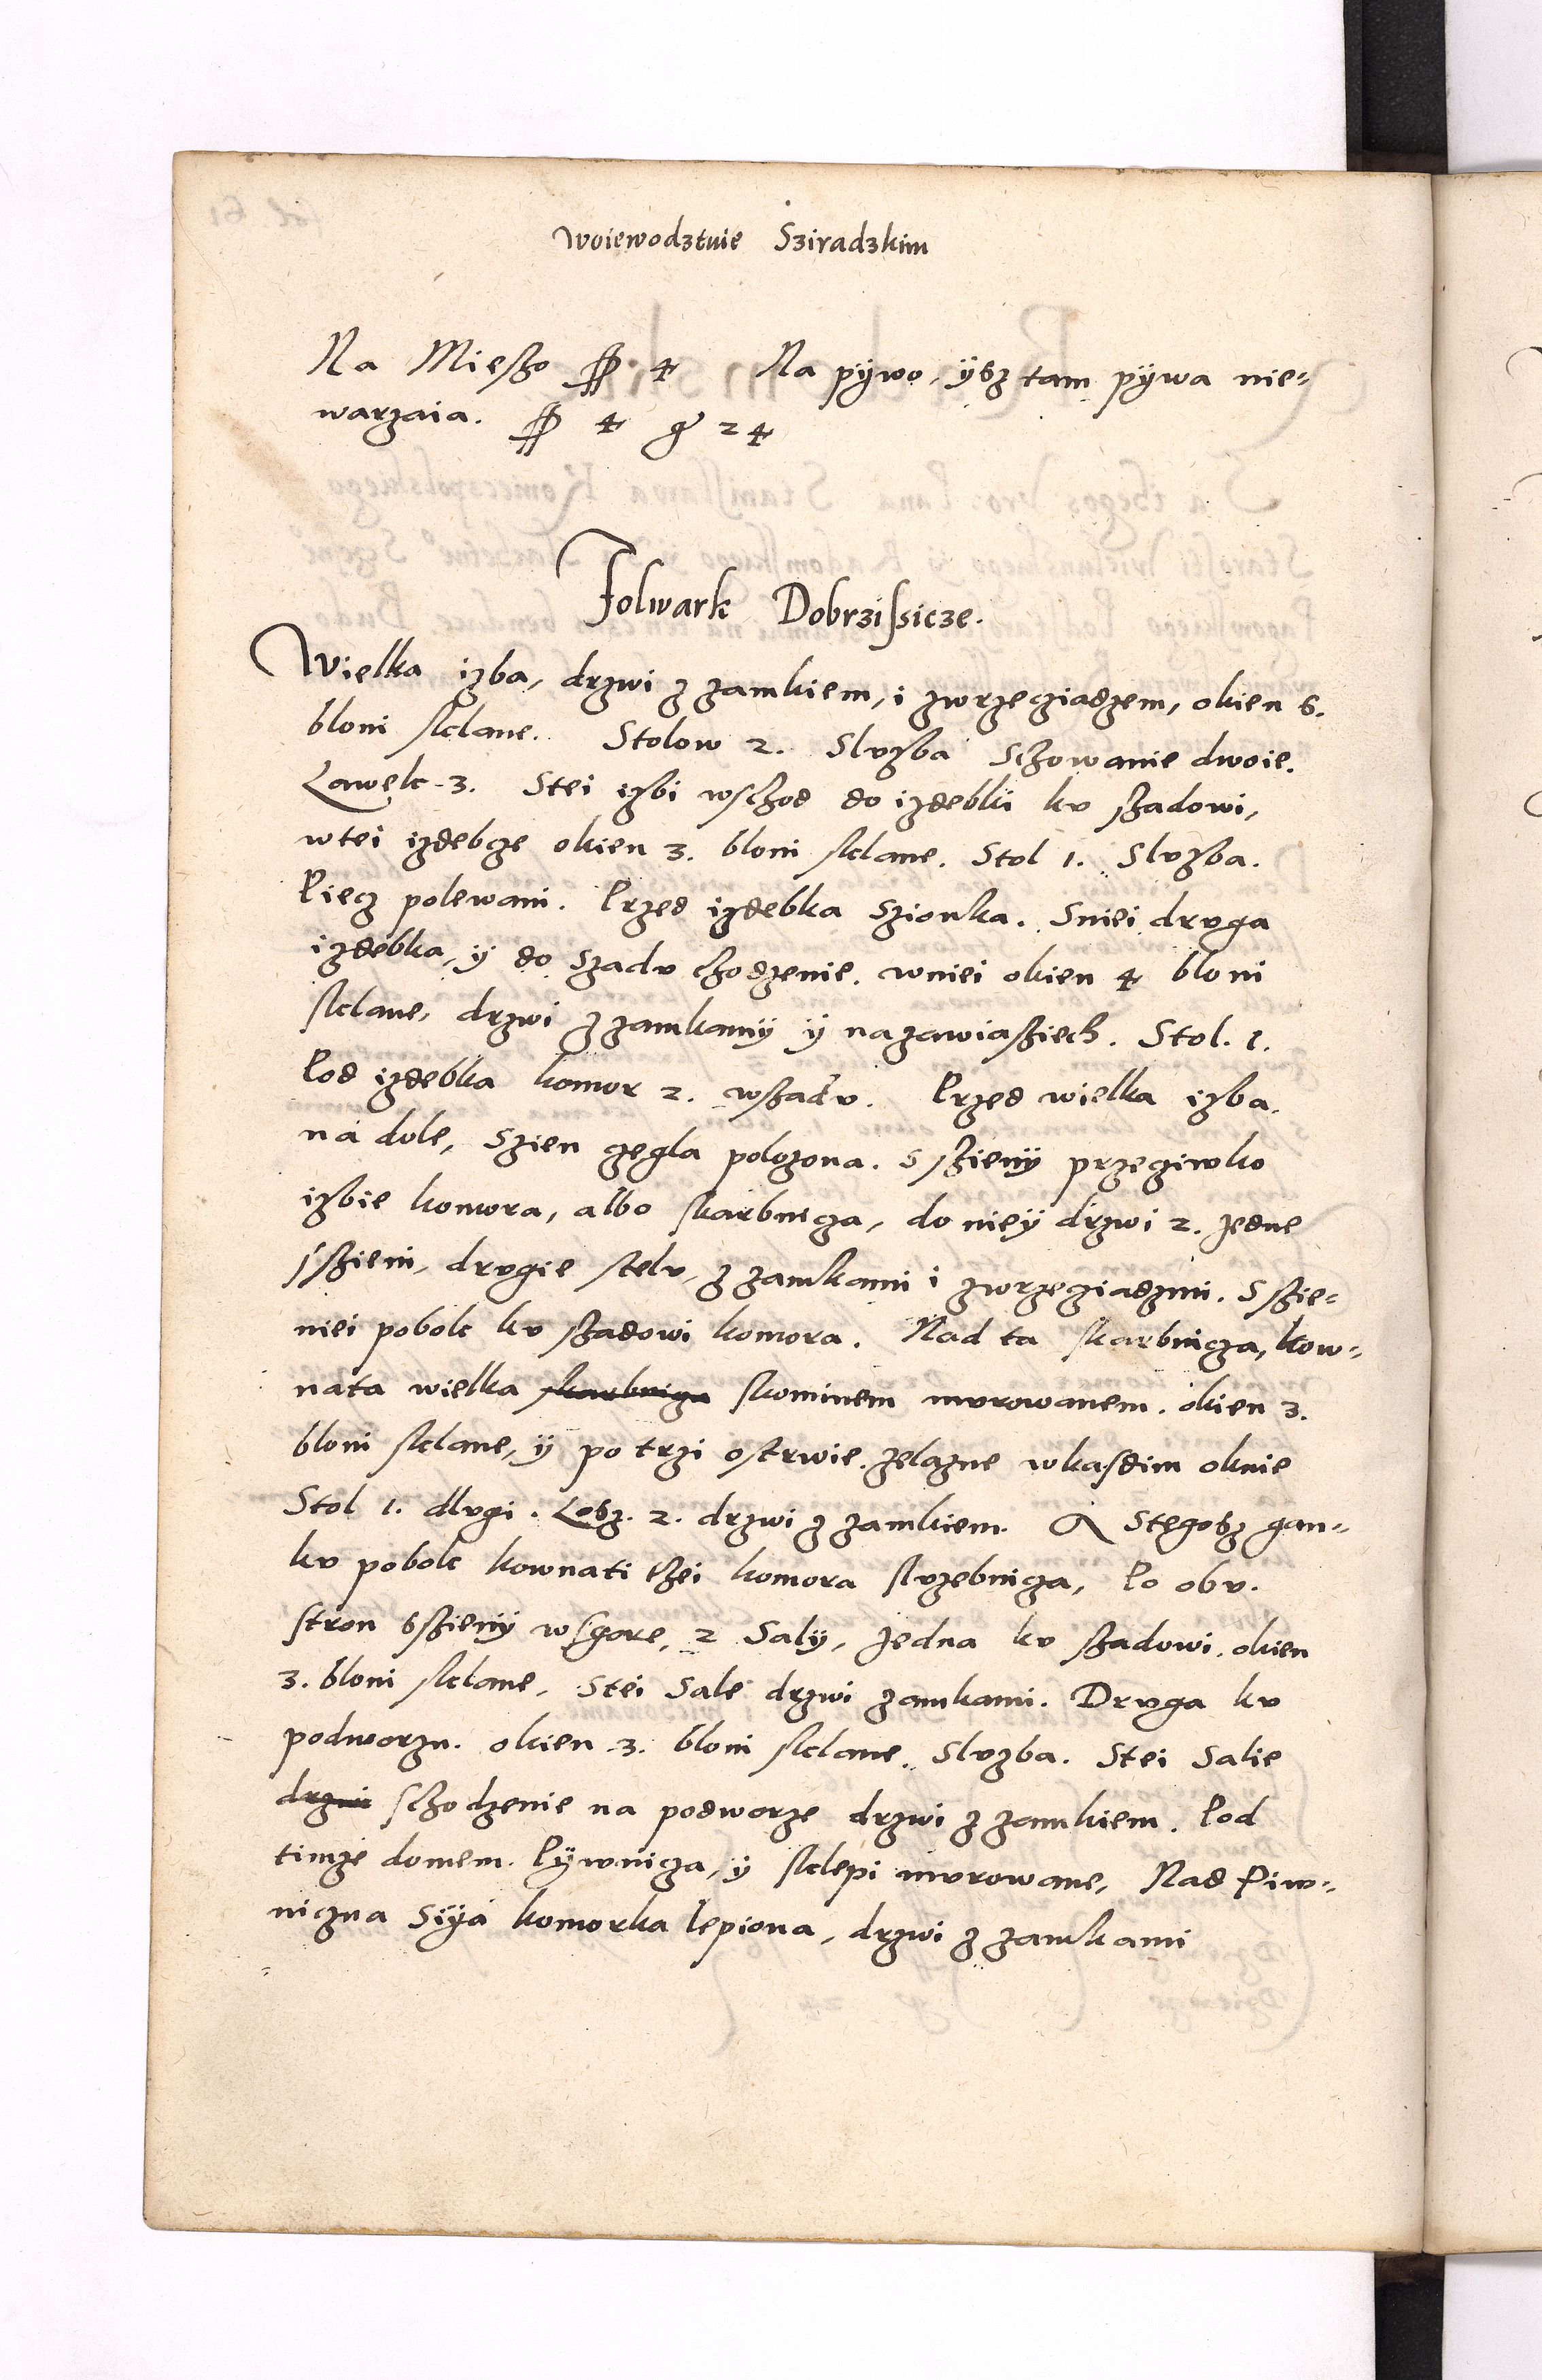 woiewodztwie Sziradzkim
Na Mieszo ₰ 4 Na pÿwo, ÿsz tam pÿwa nie=
warzaia. ₰ 4 gr 24
Folwark Dobrzissicze.
Wielka izba, drzwi z zamkiem, i zwrzecziadzem, okien 6.
bloni sklane. Stolow 2. Slvzba Schowanie dwoie.
Lawek 3. Stei izbi wschod do izdebki kv szadowi,
wtei izdebcze okien 3. bloni sklane. Stol 1. Slvzba.
Piecz polewani. Przed izdebka Szionka. Sniei drvga
izdebka, y do Szadv chodzenie. wniei okien 4 bloni
sklane, drzwi z zamkamÿ ÿ nazawiasziech. Stol. 1.
Pod izdebka komor 2. wszadv. Przed wielka izba.
na dole, Szien czegla polozona. S szienÿ przecziwko
izbie komora, albo skarbnicza, do nieÿ drzwi 2. Jedne
s szieni, drvgie stelv, z zamkami i zwrzecziadzmi. S szie=
niei pobok kv szadowi komora. Nad ta skarbnicza, kow=
nata wielka skarbnicza skominem mvrowanem. okien 3.
bloni sklane, ÿ po trzi ostrwie zelazne wkasdim oknie
Stol 1. dlvgi. Losz. 2. drzwi z zamkiem. A Stegosz gan=
kv pobok kownati tzei komora slvzebnicza, Po obv.
stron sszienÿ wsgore, 2 Salÿ, Jedna kv szadowi. okien
3. bloni sklane, Stei Sale drzwi zamkami. Drvga kv
podworzu. okien 3. bloni sklane. Slvzba. Stei Salie
drzwi schodzenie na podworze drzwi z zamkiem. Pod
timze domem. Pÿwnicza, ÿ sklepi mvrowane, Nad Piw=
niczna Siÿa komorka lepiona, drzwi z zamkami